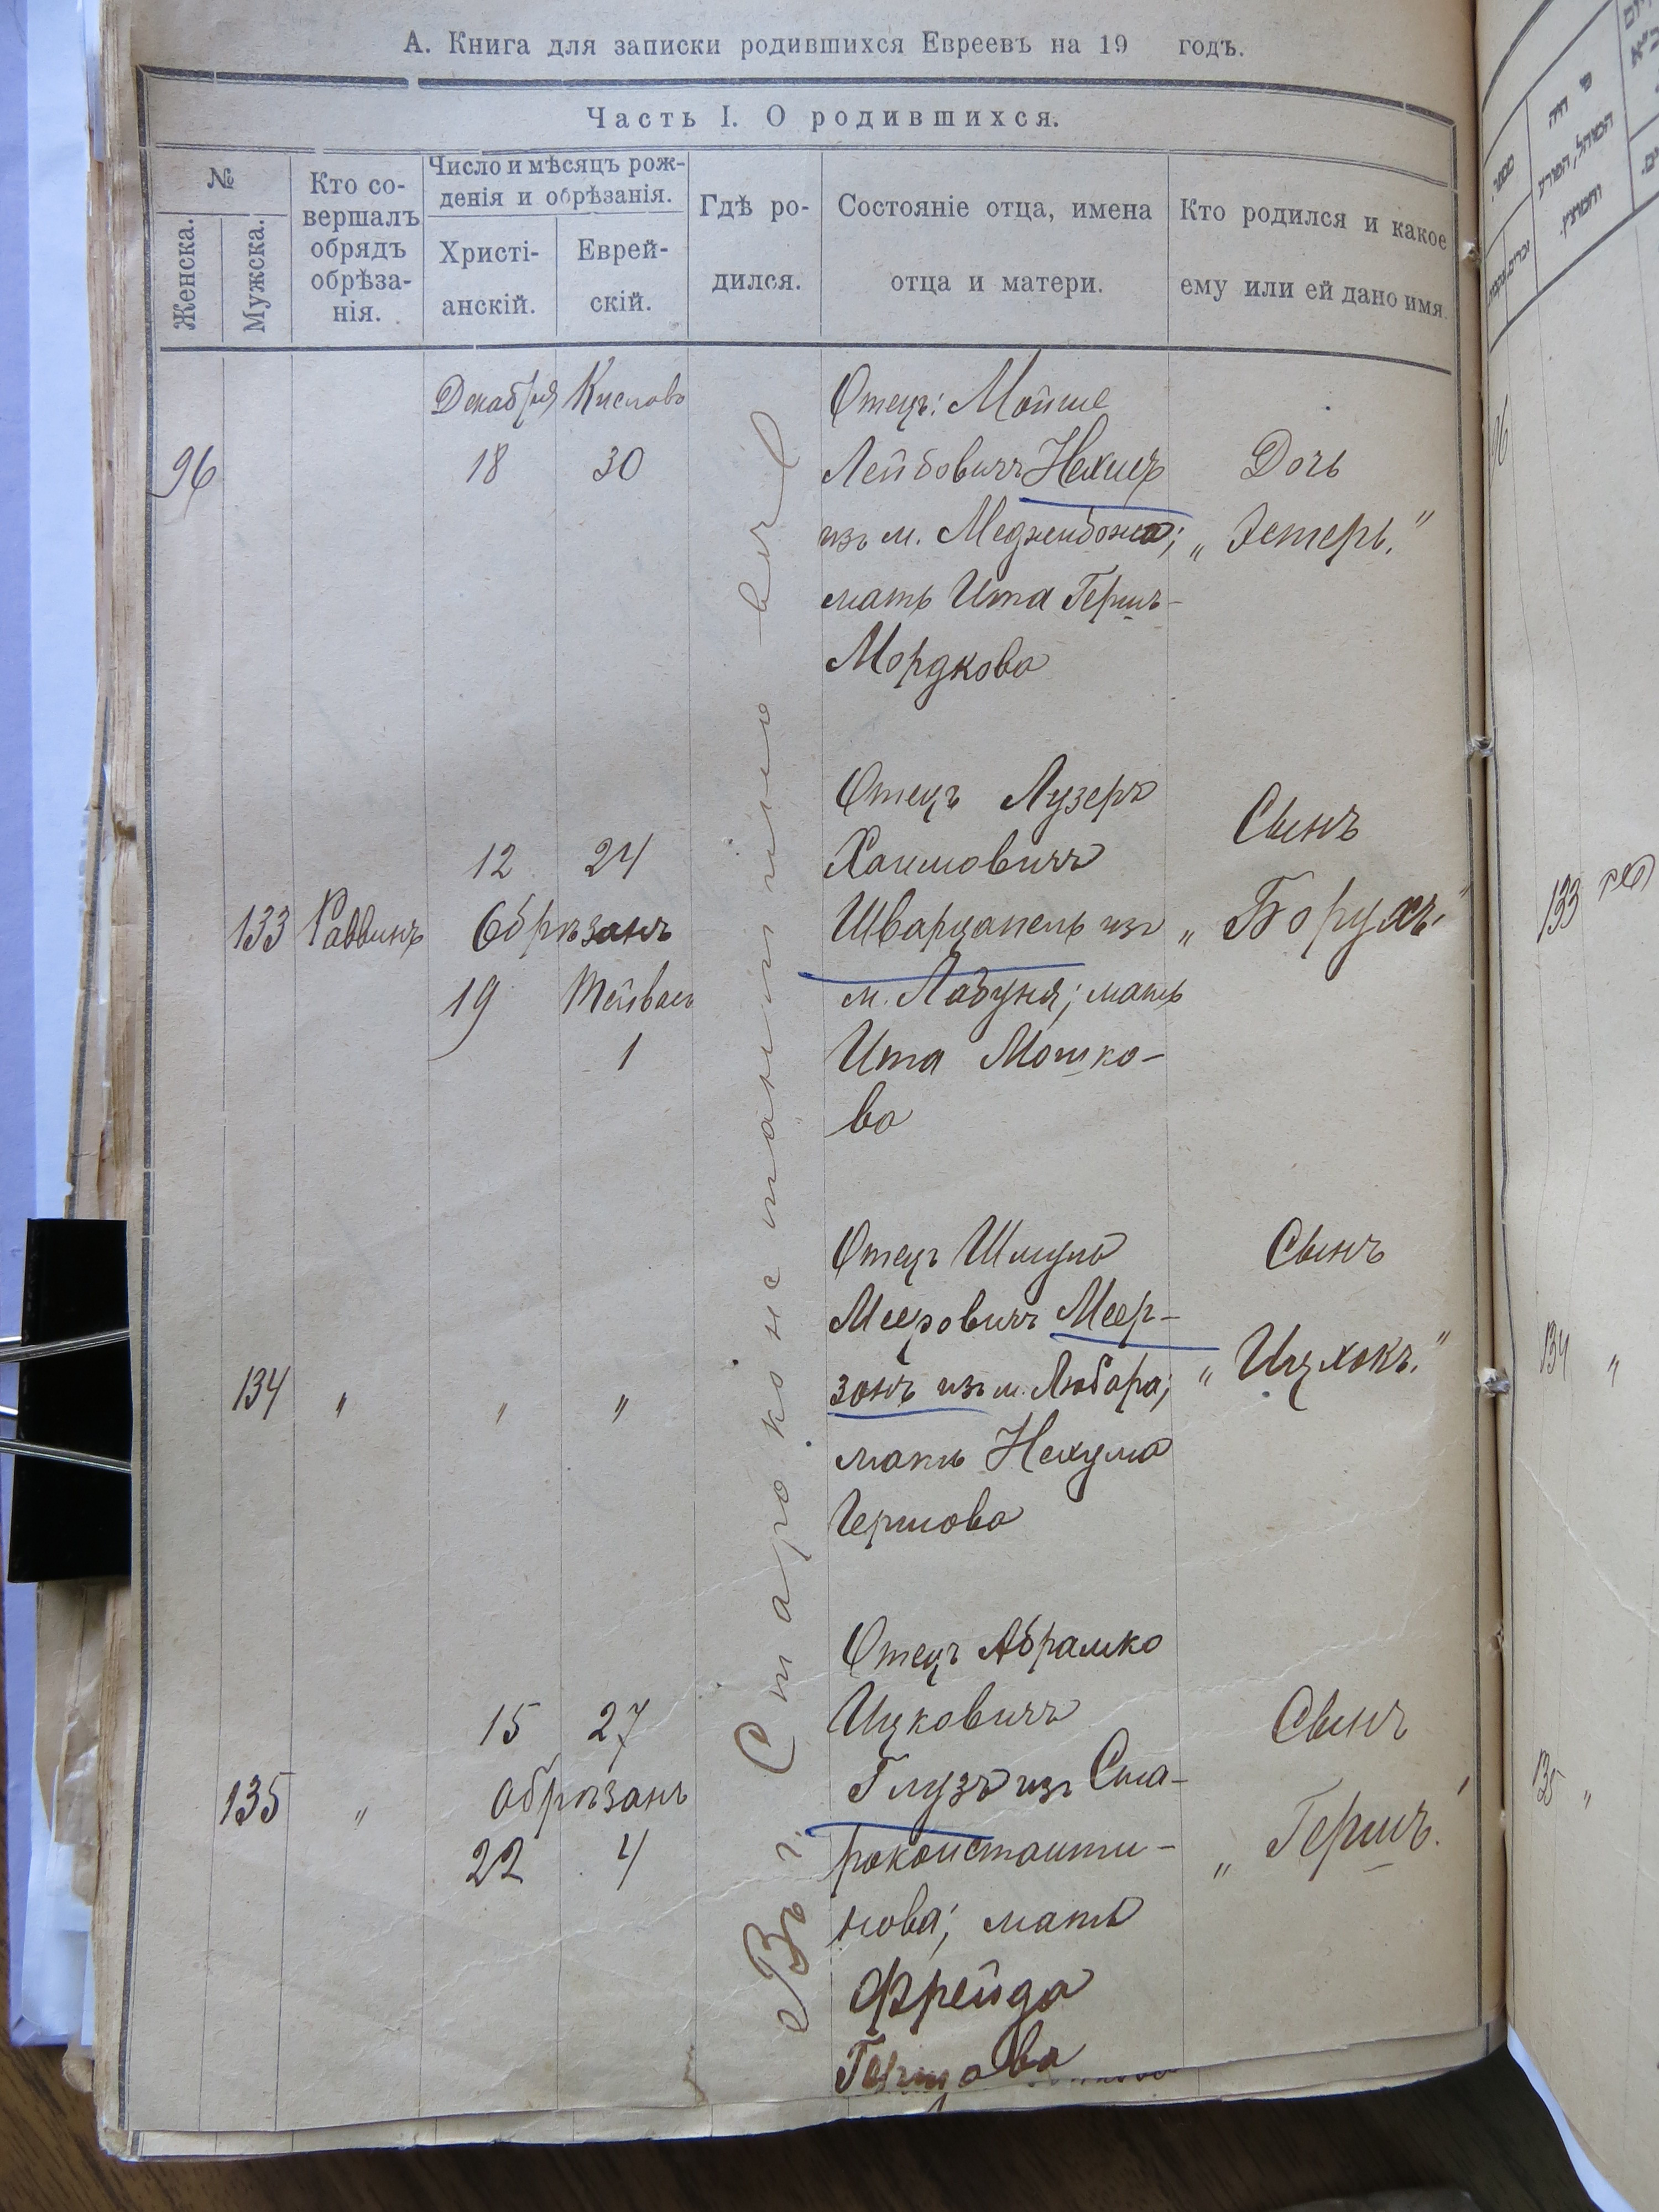 А. Книга для записки родившихся Евреевъ на 19 годъ.
Часть I. О родившихся.
№
Женска.
Мужска.
Кто со-
вершалъ
обрядъ
обрѣза-
нія.
Число и мѣсяцъ рож-
денія и обрѣзанія.
Христі-
анскій.
Еврей-
скій.
Гдѣ ро-
дился.
Состояніе отца, имена
отца и матери.
Кто родился и какое
ему или ей дано имя.
Въ г. Староконстантиновѣ
Декабря Кислова
96 18 30
Отецъ: Мойше
Лейбовичъ
изъ м. Меджибожа;
мать Ита Гершъ-
Мордкова
Дочь
„Эстеръ."
12 24
133 Раввинъ Обрѣзанъ
19
1
Отецъ Лузеръ
Хаимовичъ
Шварцапель изъ
м. Лабуня; мать
Ита Мошко-
ва
Сынъ
„Борухъ."
134 " " "
Отецъ Шмуль
Мееровичъ Меер-
зонъ изъ м. Любара;
мать Нехума
Гершова
Сынъ
„Ицхокъ."
15 27
135 " Обрѣзанъ
22 4
Отецъ Абрамко
Ицковичъ
Глузъ изъ Ста-
роконстанти-
нова; мать
Фрейда
Гершова
Сынъ
„Гершъ."
96
133
134 "
135 "